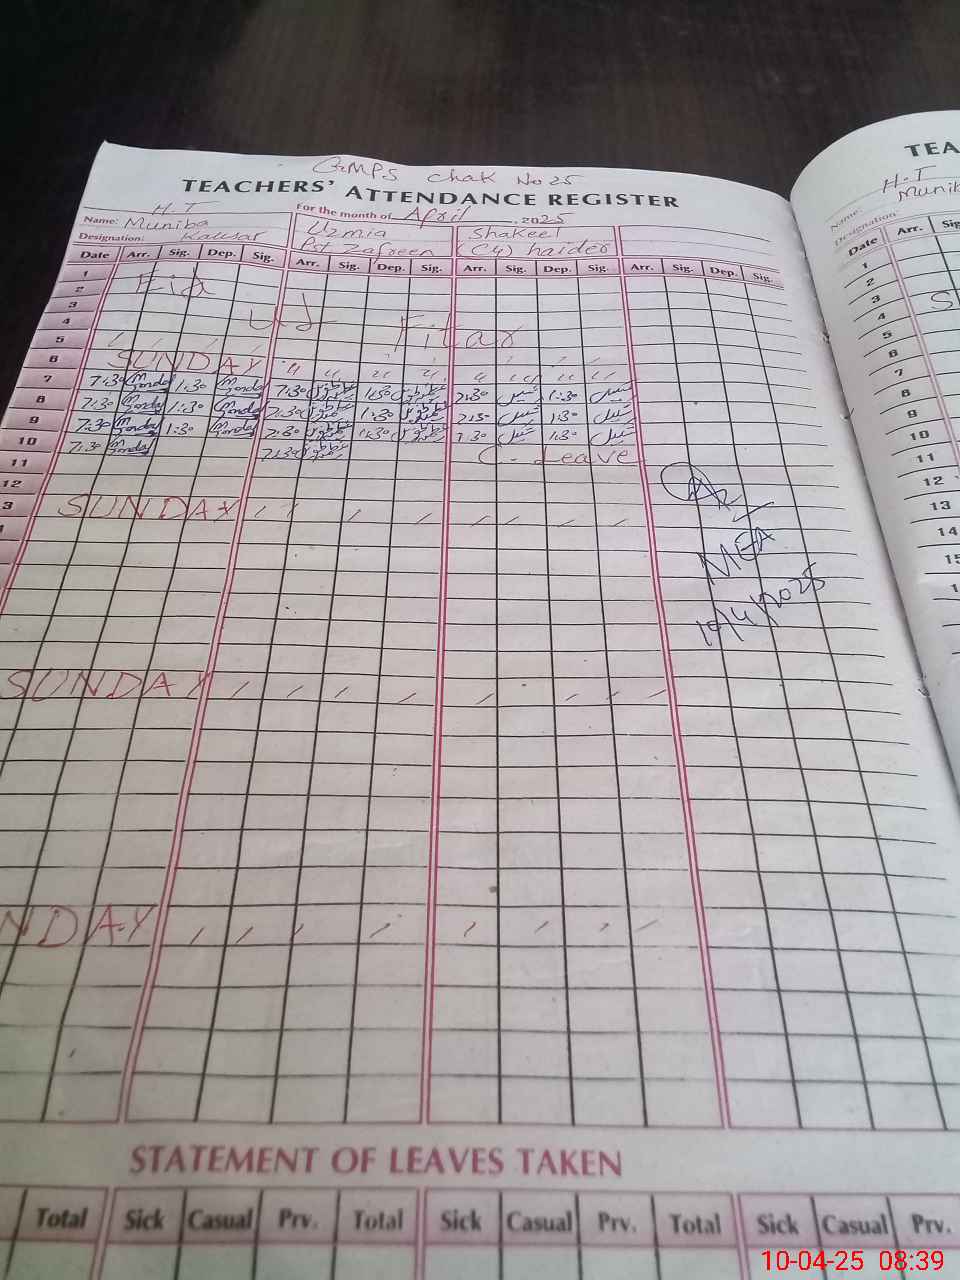 GMPS Chak No 25
TEACHERS' ATTENDANCE REGISTER
H.T
For the month of April, 2025
Name: Muniba Uzmia Shakeel
Designation: Kausar Pst Zafreen (C4) haider
Date Arr. Sig. Dep. Sig. Arr. Sig. Dep. Sig. Arr. Sig. Dep. Sig. Arr. Sig. Dep. Sig.
1 Eid
2
3 Ul Fitar
4
5
6 SUNDAY
7 7:30 1:30 7:30 1:30 7:30 شکیل 1:30 شکیل
8 7:30 1:30 7:30 1:30 7:30 شکیل 1:30 شکیل
9 7:30 1:30 7:30 1:30 7:30 شکیل 1:30 شکیل
10 7:30 7:30 C. Leave
11
12
3 SUNDAY
MEA
10/4/2025
SUNDAY
NDAY
STATEMENT OF LEAVES TAKEN
Total Sick Casual Prv. Total Sick Casual Prv. Total Sick Casual Prv.
TEA
H.T
Name: Muniba
Designation:
Date Arr. Sig
1
2
3 S
4
5
6
7
8
9
10
11
12
13
14
15
1
10-04-25 08:39